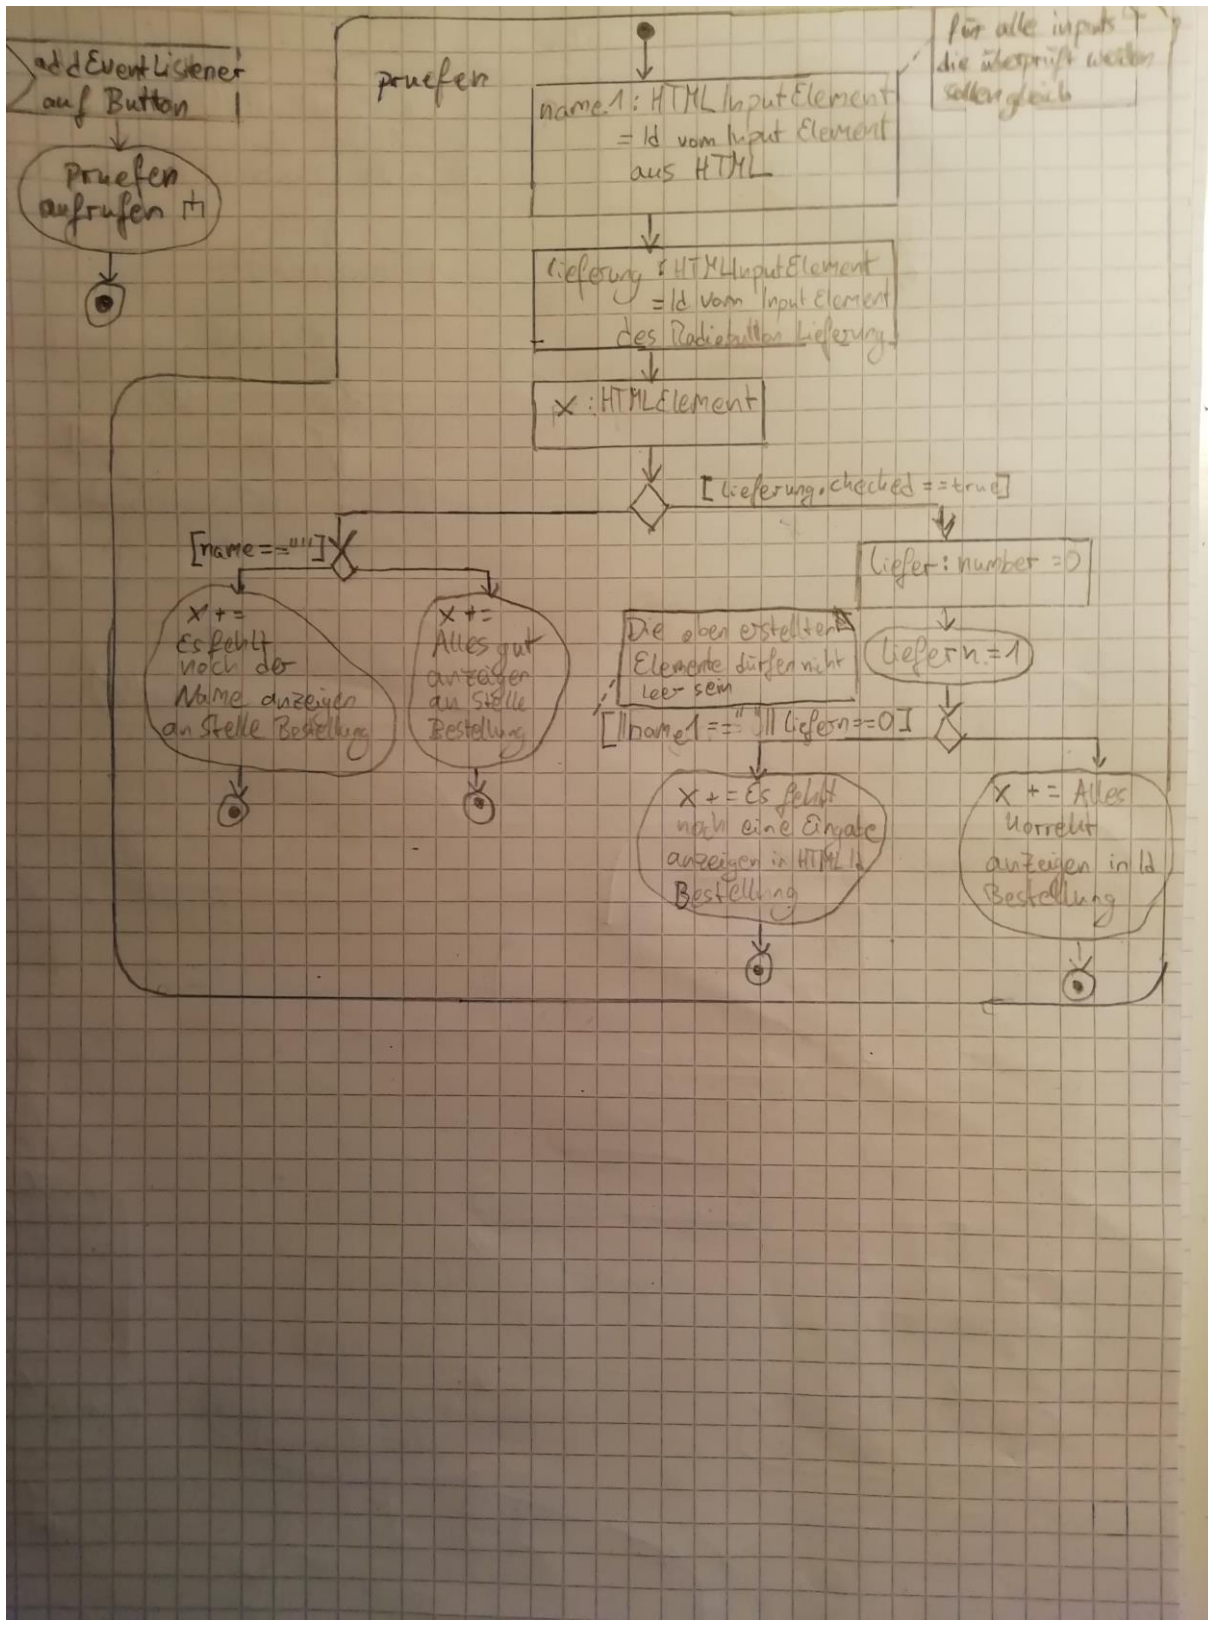 addEventListener
auf Button
pruefen
aufrufen
pruefen
für alle inputs
die überprüft werden
sollen gleich
name1 : HTMLInputElement
= Id vom Input Element
aus HTML
lieferung : HTMLInputElement
= Id vom Input Element
des Radiobutton Lieferung
x : HTMLElement
[lieferung.checked == true]
[name == ""]
x +=
Es fehlt
noch der
Name anzeigen
an Stelle Bestellung
x +=
Alles gut
anzeigen
an Stelle
Bestellung
liefer : number = 0
liefern = 1
Die oben erstellten
Elemente dürfen nicht
leer sein
[||name1 == "" || liefern == 0]
x += Es fehlt
noch eine Eingabe
anzeigen in HTML Id
Bestellung
x += Alles
korrekt
anzeigen in Id
Bestellung